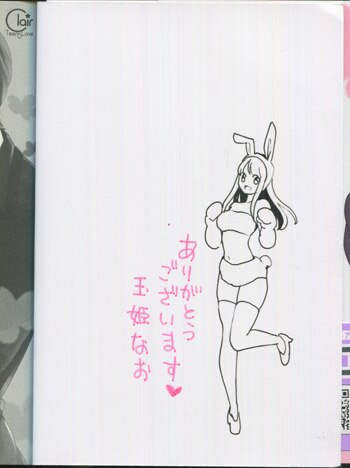 Clair
TeensLove
ありがとう
ございます♥
玉姫なお